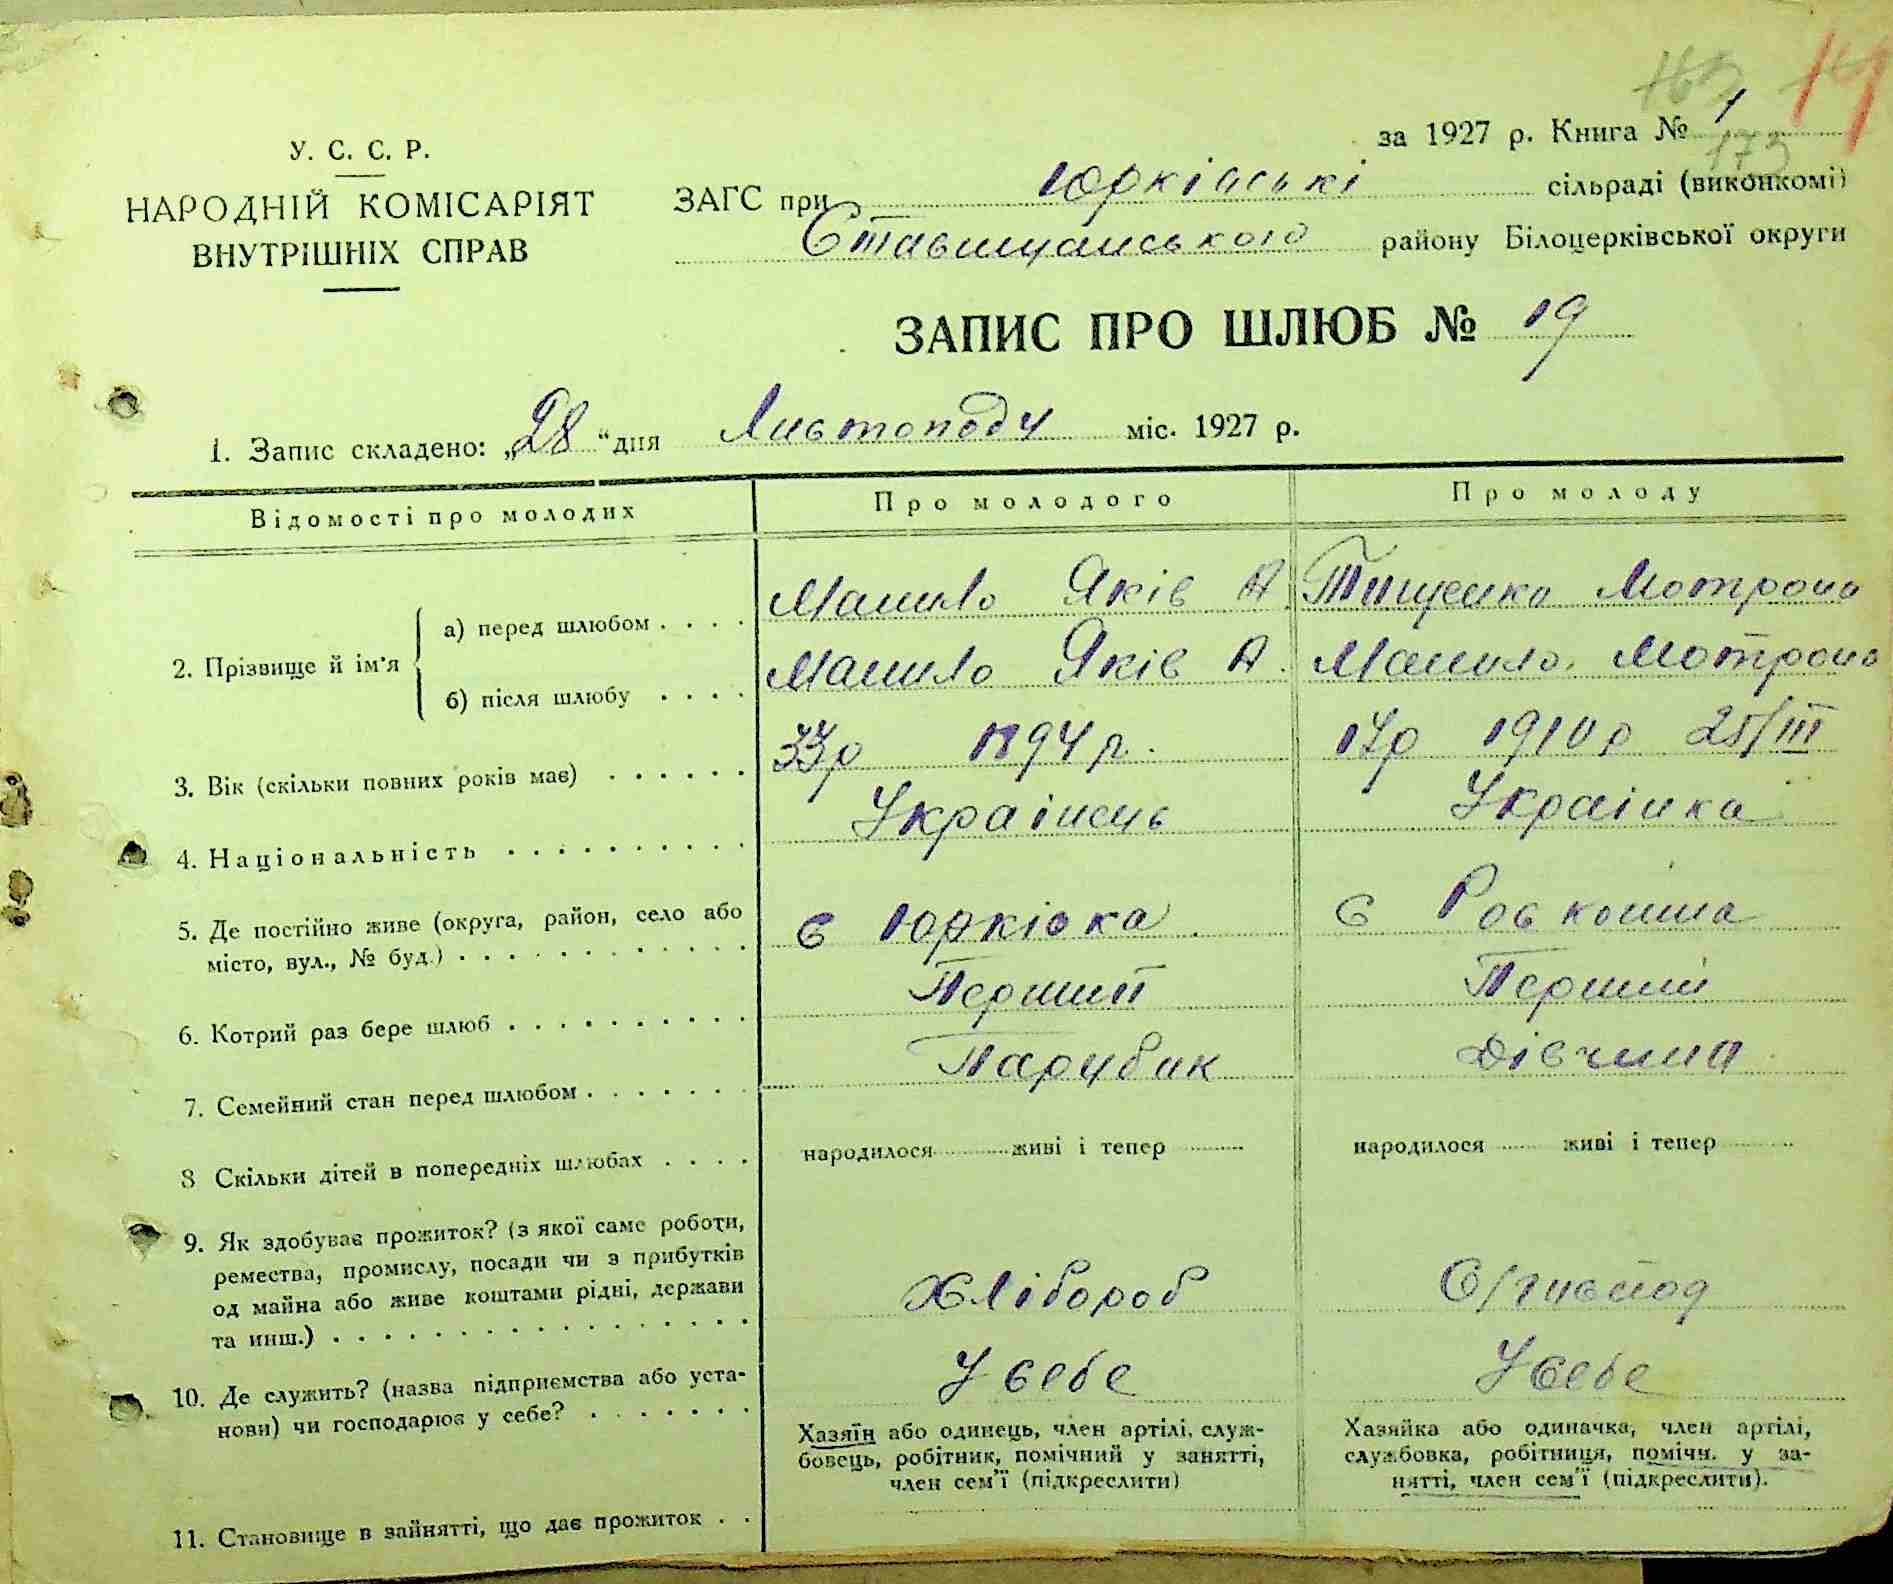 за 1927 р. Книга № 1
173
У. С. С. Р.
НАРОДНІЙ КОМІСАРІЯТ
ВНУТРІШНІХ СПРАВ
ЗАГС при Юрківські сільраді (виконкомі)
Ставищанського району Білоцерківської округи
ЗАПИС ПРО ШЛЮБ № 19
1. Запис складено: „28“ дня Листопаду міс. 1927 р.
Відомості про молодих
Про молодого
Про молоду
2. Прізвище й ім'я
а) перед шлюбом . . . .
Манило Яків А.
Тищенко Мотрона
б) після шлюбу . . . .
Манило Яків А.
Манило Мотрона
3. Вік (скільки повних років має) . . . . . .
33р 1894 р.
17р 1910 р 25/III
4. Національність . . . . . . . . . .
Українець
Українка
5. Де постійно живе (округа, район, село або
місто, вул., № буд.) . . . . . . . . . . . .
с Юрківка
с Роскошна
6. Котрий раз бере шлюб . . . . . . . . . .
Перший
Перший
7. Семейний стан перед шлюбом . . . . . . .
Парубак
Дівчина
8 Скільки дітей в попередніх шлюбах . . . .
народилося живі і тепер
народилося живі і тепер
9. Як здобуває прожиток? (з якої саме роботи,
ремества, промислу, посади чи з прибутків
од майна або живе коштами рідні, держави
та инш.) . . . . . . . . . . . . . . . . .
Хлібороб
10. Де служить? (назва підприємства або уста-
нови) чи господарює у себе? . . . . . . .
У себе
У себе
Хазяїн або одинець, член артілі, служ-
бовець, робітник, помічний у занятті,
член сем'ї (підкреслити)
Хазяйка або одиначка, член артілі,
службовка, робітниця, помічн. у за-
нятті, член сем'ї (підкреслити).
11. Становище в зайнятті, що дає прожиток . .